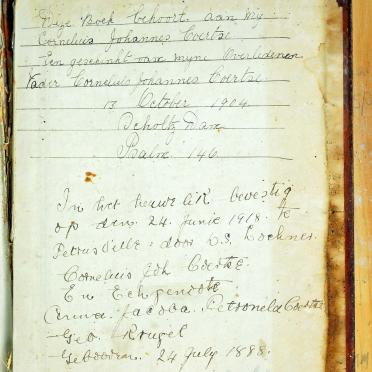 Deze Boek behoort aan my
Cornelius Johannes Coertse
Een geschenk van myne Overledenen
Vader Cornelius Johannes Coertse
13 October 1904
Psalm 146
In het heuwelik bevestig
op den 24 Junie 1918 te
Petrusville door D.S. Lochner.
Cornelius Joh Coertse
En Echgenoote
Anna Jacoba Petronela Coertse
Geb. Krugel
Gebooren 24 July 1898.